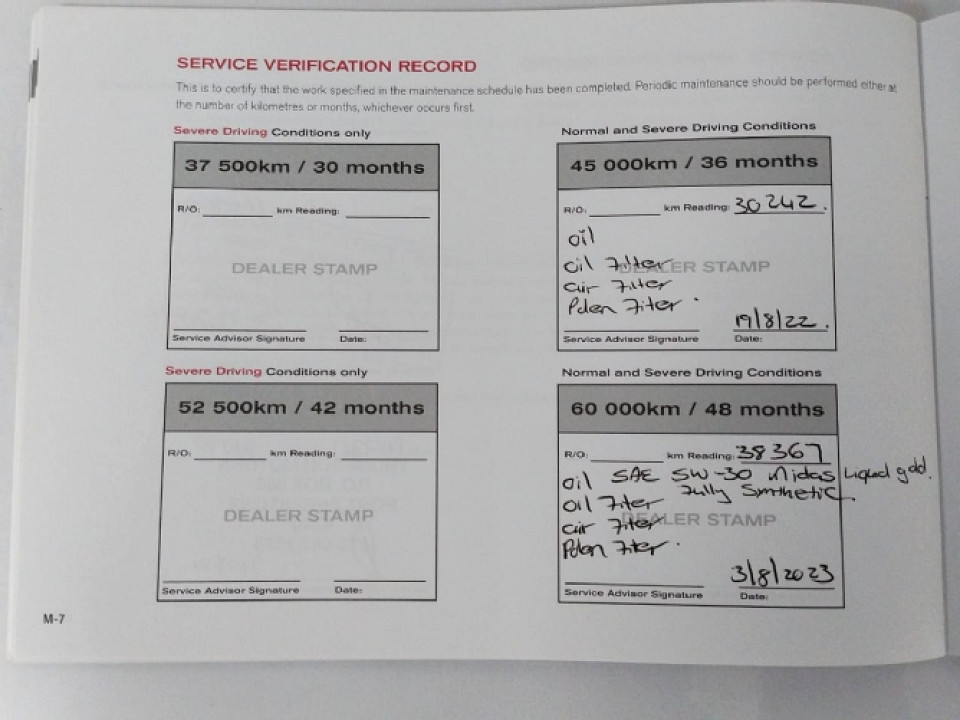 SERVICE VERIFICATION RECORD
This is to certify that the work specified in the maintenance schedule has been completed. Periodic maintenance should be performed either at
the number of kilometres or months, whichever occurs first.
Severe Driving Conditions only
37 500km / 30 months
R/O: km Reading:
DEALER STAMP
Service Advisor Signature Date:
Normal and Severe Driving Conditions
45 000km / 36 months
R/O: km Reading: 30242.
oil
oil Filter DEALER STAMP
air Filter
Polen Filter.
19/8/22.
Service Advisor Signature Date:
Severe Driving Conditions only
52 500km / 42 months
R/O: km Reading:
DEALER STAMP
Service Advisor Signature Date:
Normal and Severe Driving Conditions
60 000km / 48 months
R/O: km Reading: 38367
oil SAE 5W-30 Midas Liquid gold.
Oil Filter Fully Synthetic.
air Filter DEALER STAMP
Polen Filter.
3/8/2023
Service Advisor Signature Date:
M-7